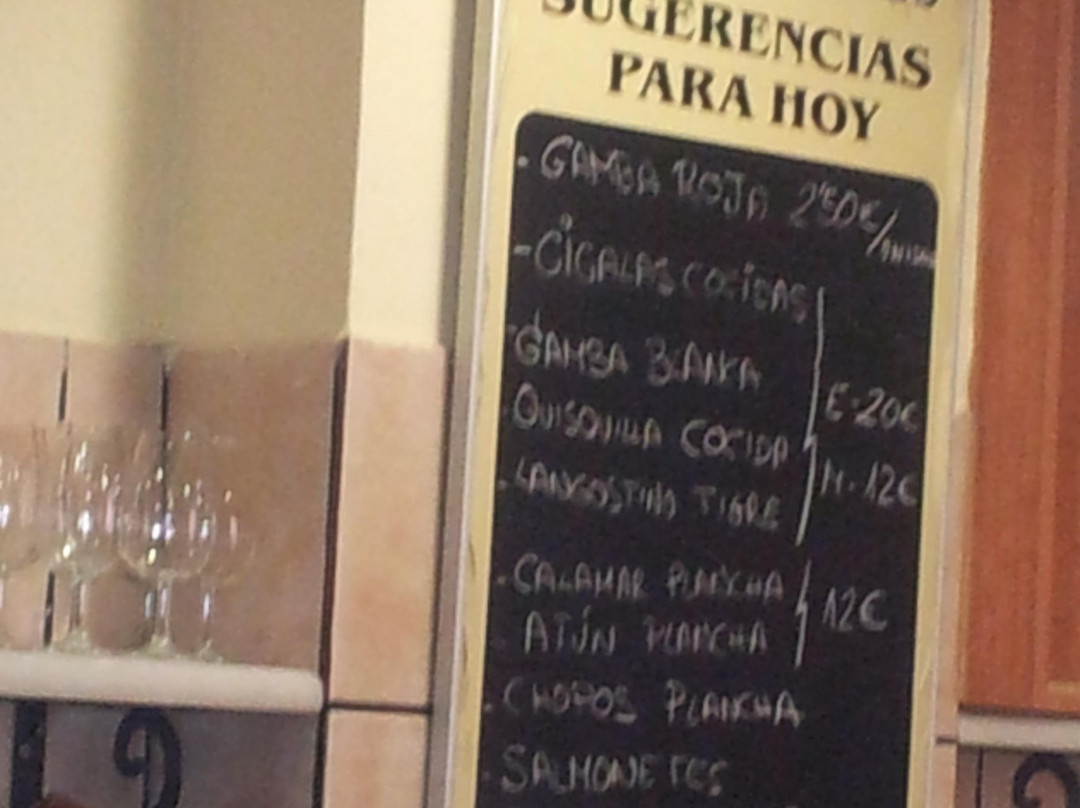 SUGERENCIAS
PARA HOY
- GAMBA ROJA 2'50€/
- CIGALAS COCIDAS
- GAMBA BLANKA
E-20€
- QUISQUILLA COCIDA
M-12€
- LANGOSTINO TIGRE
- CALAMAR PLANCHA
12€
- ATÚN PLANCHA
- CHOPOS PLANCHA
- SALMONETES